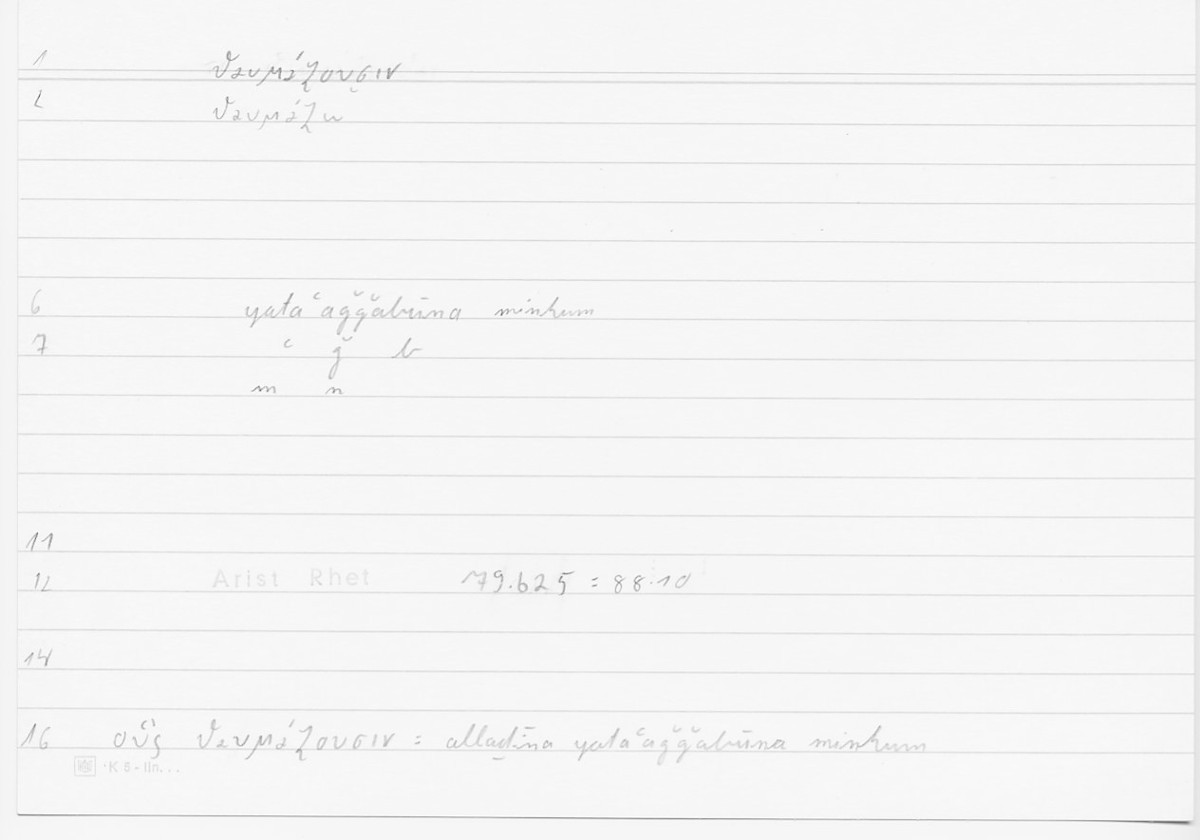 1 θαυμάζουσιν
2 θαυμάζω
6 yataʿaǧǧabūna minkum
7 ʿ ǧ b
m n
11
12 Arist Rhet 79.b25 = 88.10
14
16 οὓς θαυμάζουσιν = allaḏīna yataʿaǧǧabūna minkum
K 5 - lin...